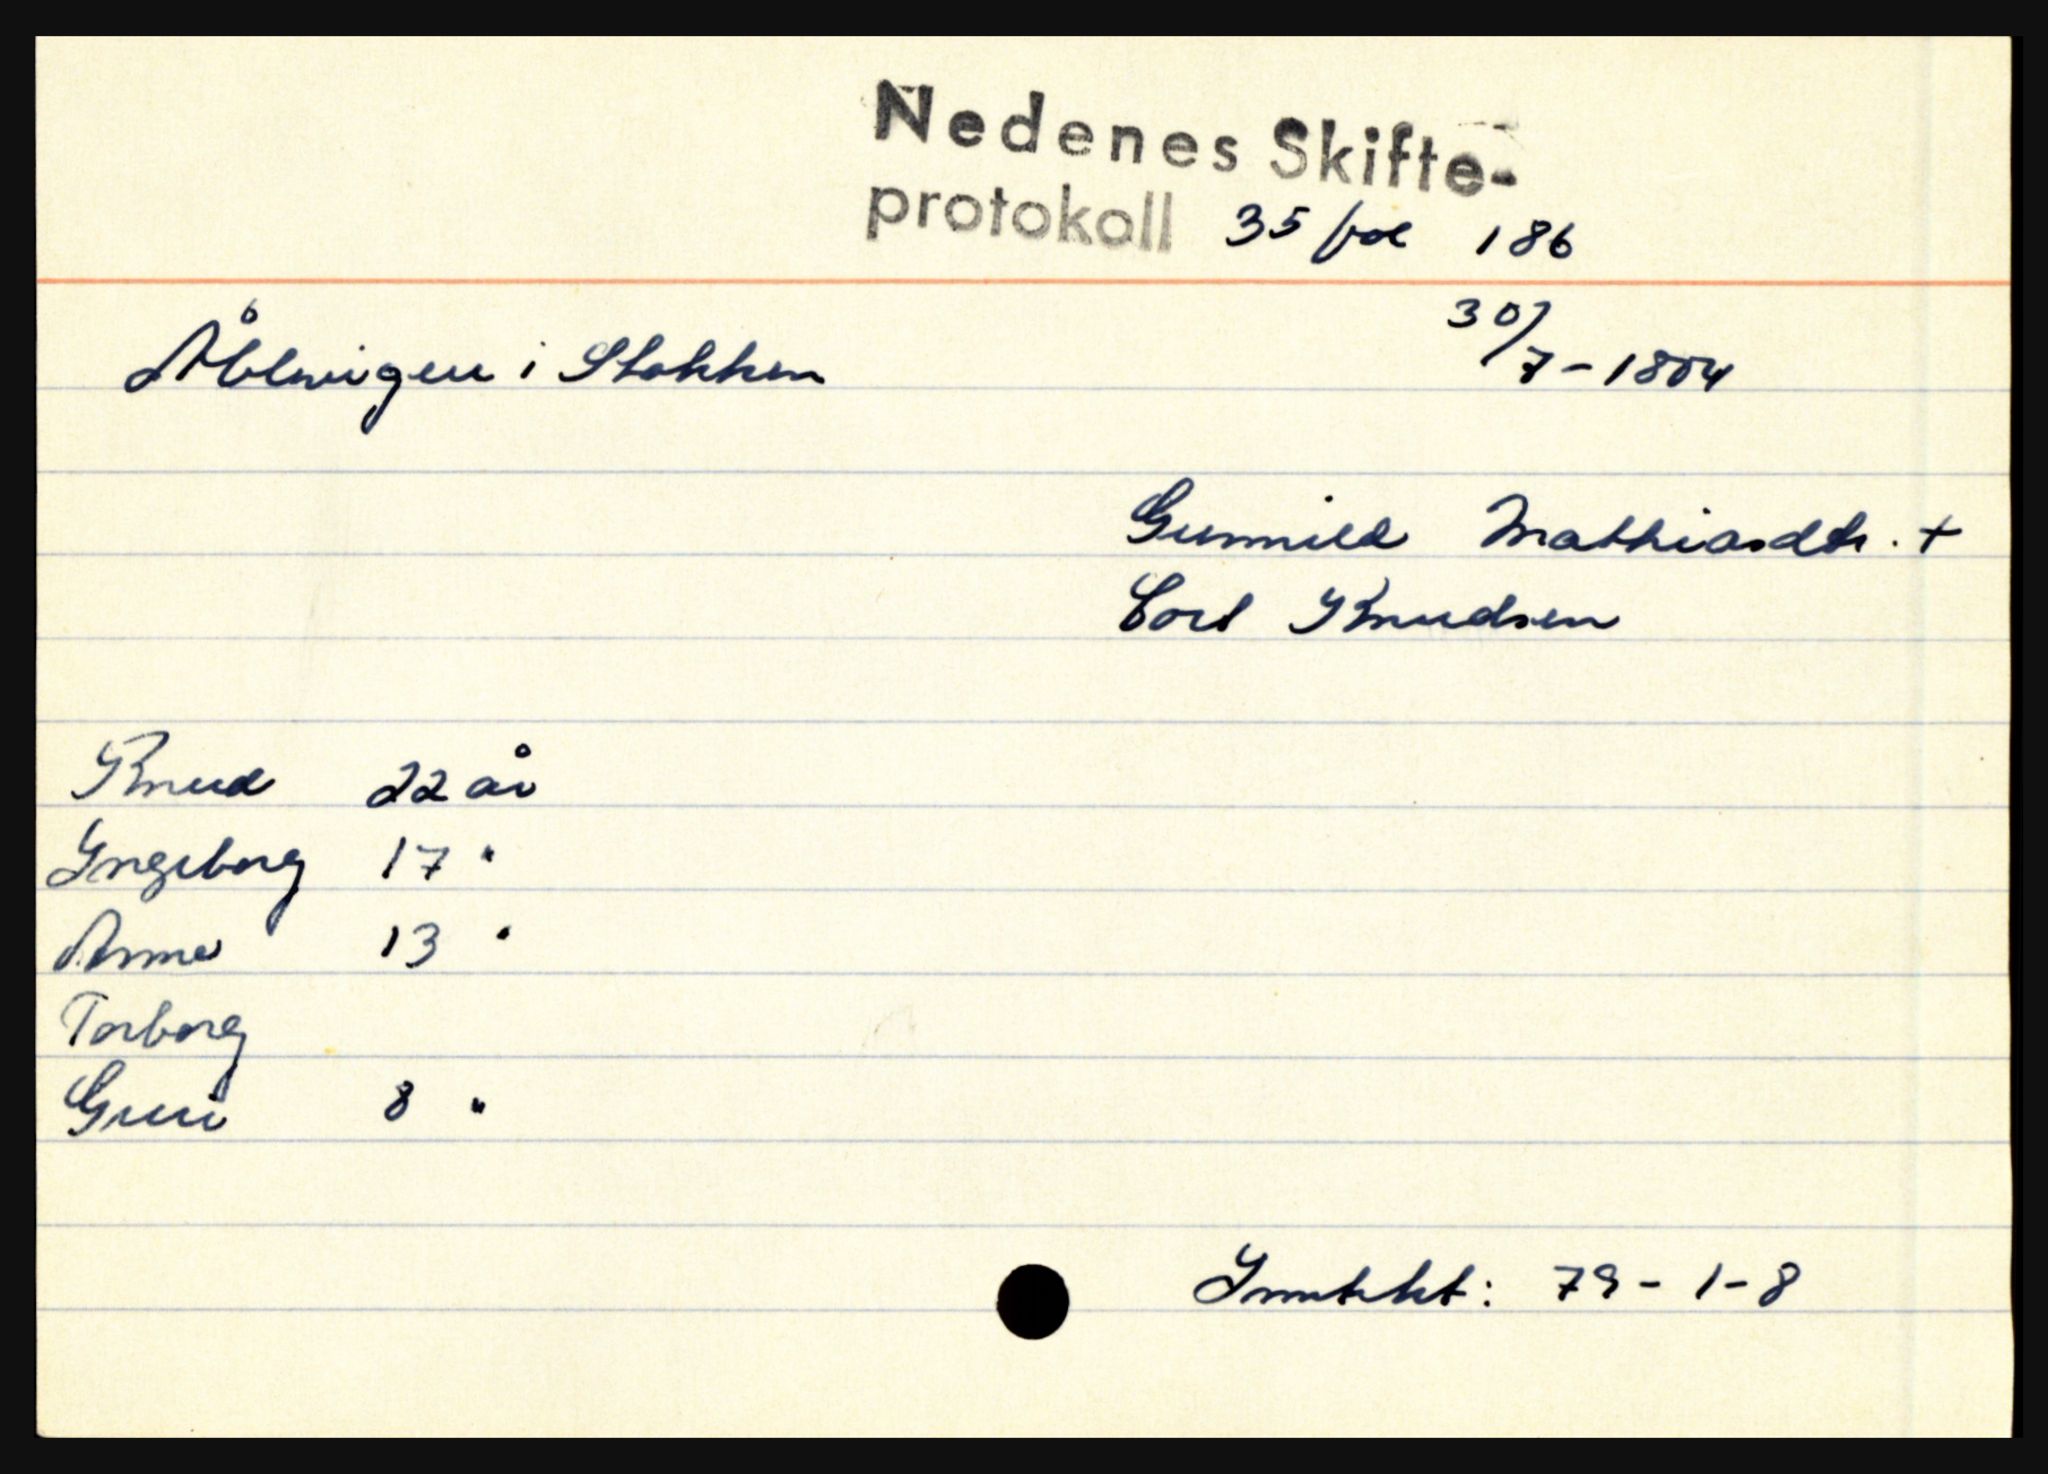 Nedenes Skifte-
protokoll 35 fol 186
30/7-1804
i Stokken
Gunnild Mathiasdtr. +
Carl Knudsen
Knud 22 år
Ingeborg 17 "
Anne 13 "
Torborg
Guri 8 "
Inntekt: 79-1-8